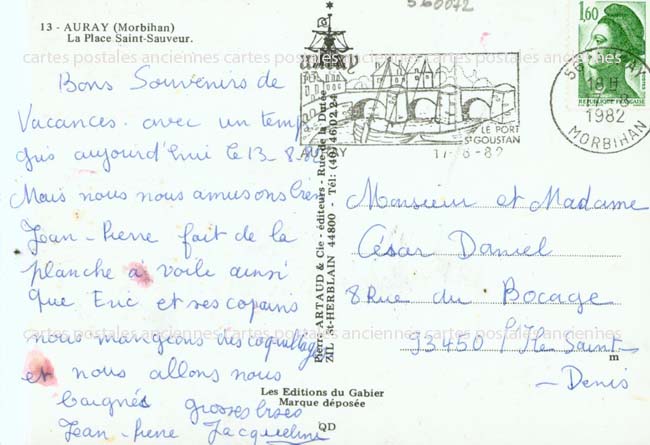 560072
13 - AURAY (Morbihan)
La Place Saint-Sauveur.
Bons Souvenirs de
Vacances. avec un temp
gris aujourd'hui le 13-8-
Mais nous nous amusons bien
Jean-Pierre fait de la
planche à voile ainsi
que Eric et ses copains
nous mangeons des coquillages
et nous allons nous
baignés grosses bises
Jean-Pierre Jacqueline
Pierre ARTAUD & Cie - éditeurs - Rue de la Dutée
ZIL St-HERBLAIN 44800 - Tél: (40) 46 02 24
Les Editions du Gabier
Marque déposée
QD
AURAY
LE PORT
ST GOUSTAN
17-8-82
1,60
REPUBLIQUE FRANCAISE
56 AURAY
18 H
1982
MORBIHAN
Monsieur et Madame
César Daniel
8 Rue du Bocage
93450 l'Ile Saint-
m
- Denis
cartes postales anciennes cartes postales anciennes cartes postales anciennes
cartes postales anciennes cartes postales anciennes cartes postales anciennes